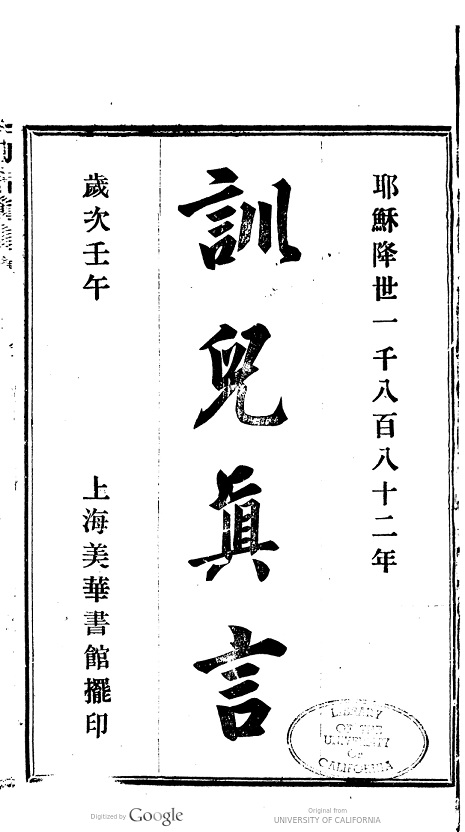 耶穌降世一千八百八十二年
訓兒眞言
歲次壬午
上海美華書館擺印
LIBRARY
OF THE
UNIVERSITY
OF
CALIFORNIA
Digitized by Google
Original from
UNIVERSITY OF CALIFORNIA